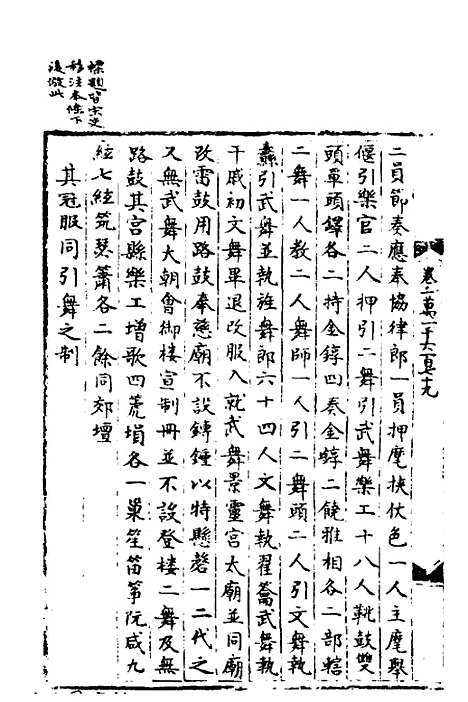 標題皆宗史
移注本條下
後倣此
卷二萬一千六百七十九
二員節奏應奉協律郎一員押麾挾仗色一人主麾舉
偃引樂官二人押引二舞引武舞樂工十八人鞉鼓雙
頭單頭鐸各二持金錞四奏金錞二鐃雅相各二部轄
二舞一人教二人舞師一人引二舞頭二人引文舞執
纛引武舞並執旌舞郎六十四人文舞執翟籥武舞執
干戚初文舞畢退改服入就武舞景靈宮太廟並同廟
改雷鼓用路鼓奉慈廟不設鎛鍾以特縣磬一二代之
又無武舞大朝會御樓宣制冊並不設登樓二舞及無
路鼓其宮縣樂工增歌四篪塤各一巢笙笛箏阮咸九
絃七絃筑瑟簫各二餘同郊壇
其冠服同引舞之制